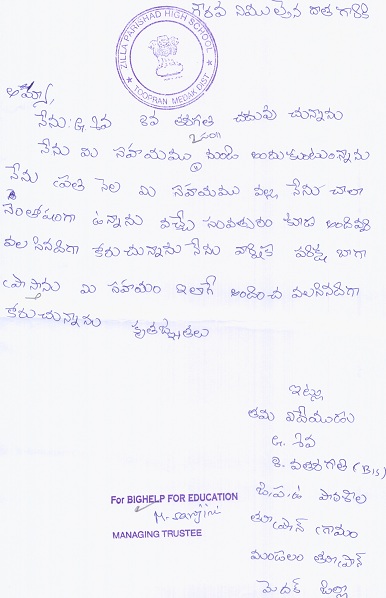 గౌరవ నియులైన దాత గారికి
ZILLA PARISHAD HIGH SCHOOL
TOOPRAN MEDAK DIST
అమ్మా,
నేను G. శివ 8వ తరగతి చదువు చున్నాను
నేను మి సహాయము 2011 నుండి అందుకుంటున్నాను
నేను ప్రతి నెల మి సహాయము వల్ల నేను చాలా
సంతషంగా ఉన్నాను వచ్చే సంవత్సరం కూడ అందివ్వ
వల సినదిగా కోరుచున్నాను నేను వార్షిక పరిక్ష బాగా
వ్రాస్తాను మి సహాయం ఇలాగే అందించ వలసినదిగా
కోరుచున్నాను కృతజ్ఞతలు
ఇట్లు
తమ విదేయుడు
G. శివ
8. వతరగతి (B1S)
జి.ప.ఉ పాఠశాల
తూప్రాన్ గ్రామం
మండలం తూప్రాన్
మెదక్ జిల్లా
For BIGHELP FOR EDUCATION
M. Sanjini
MANAGING TRUSTEE